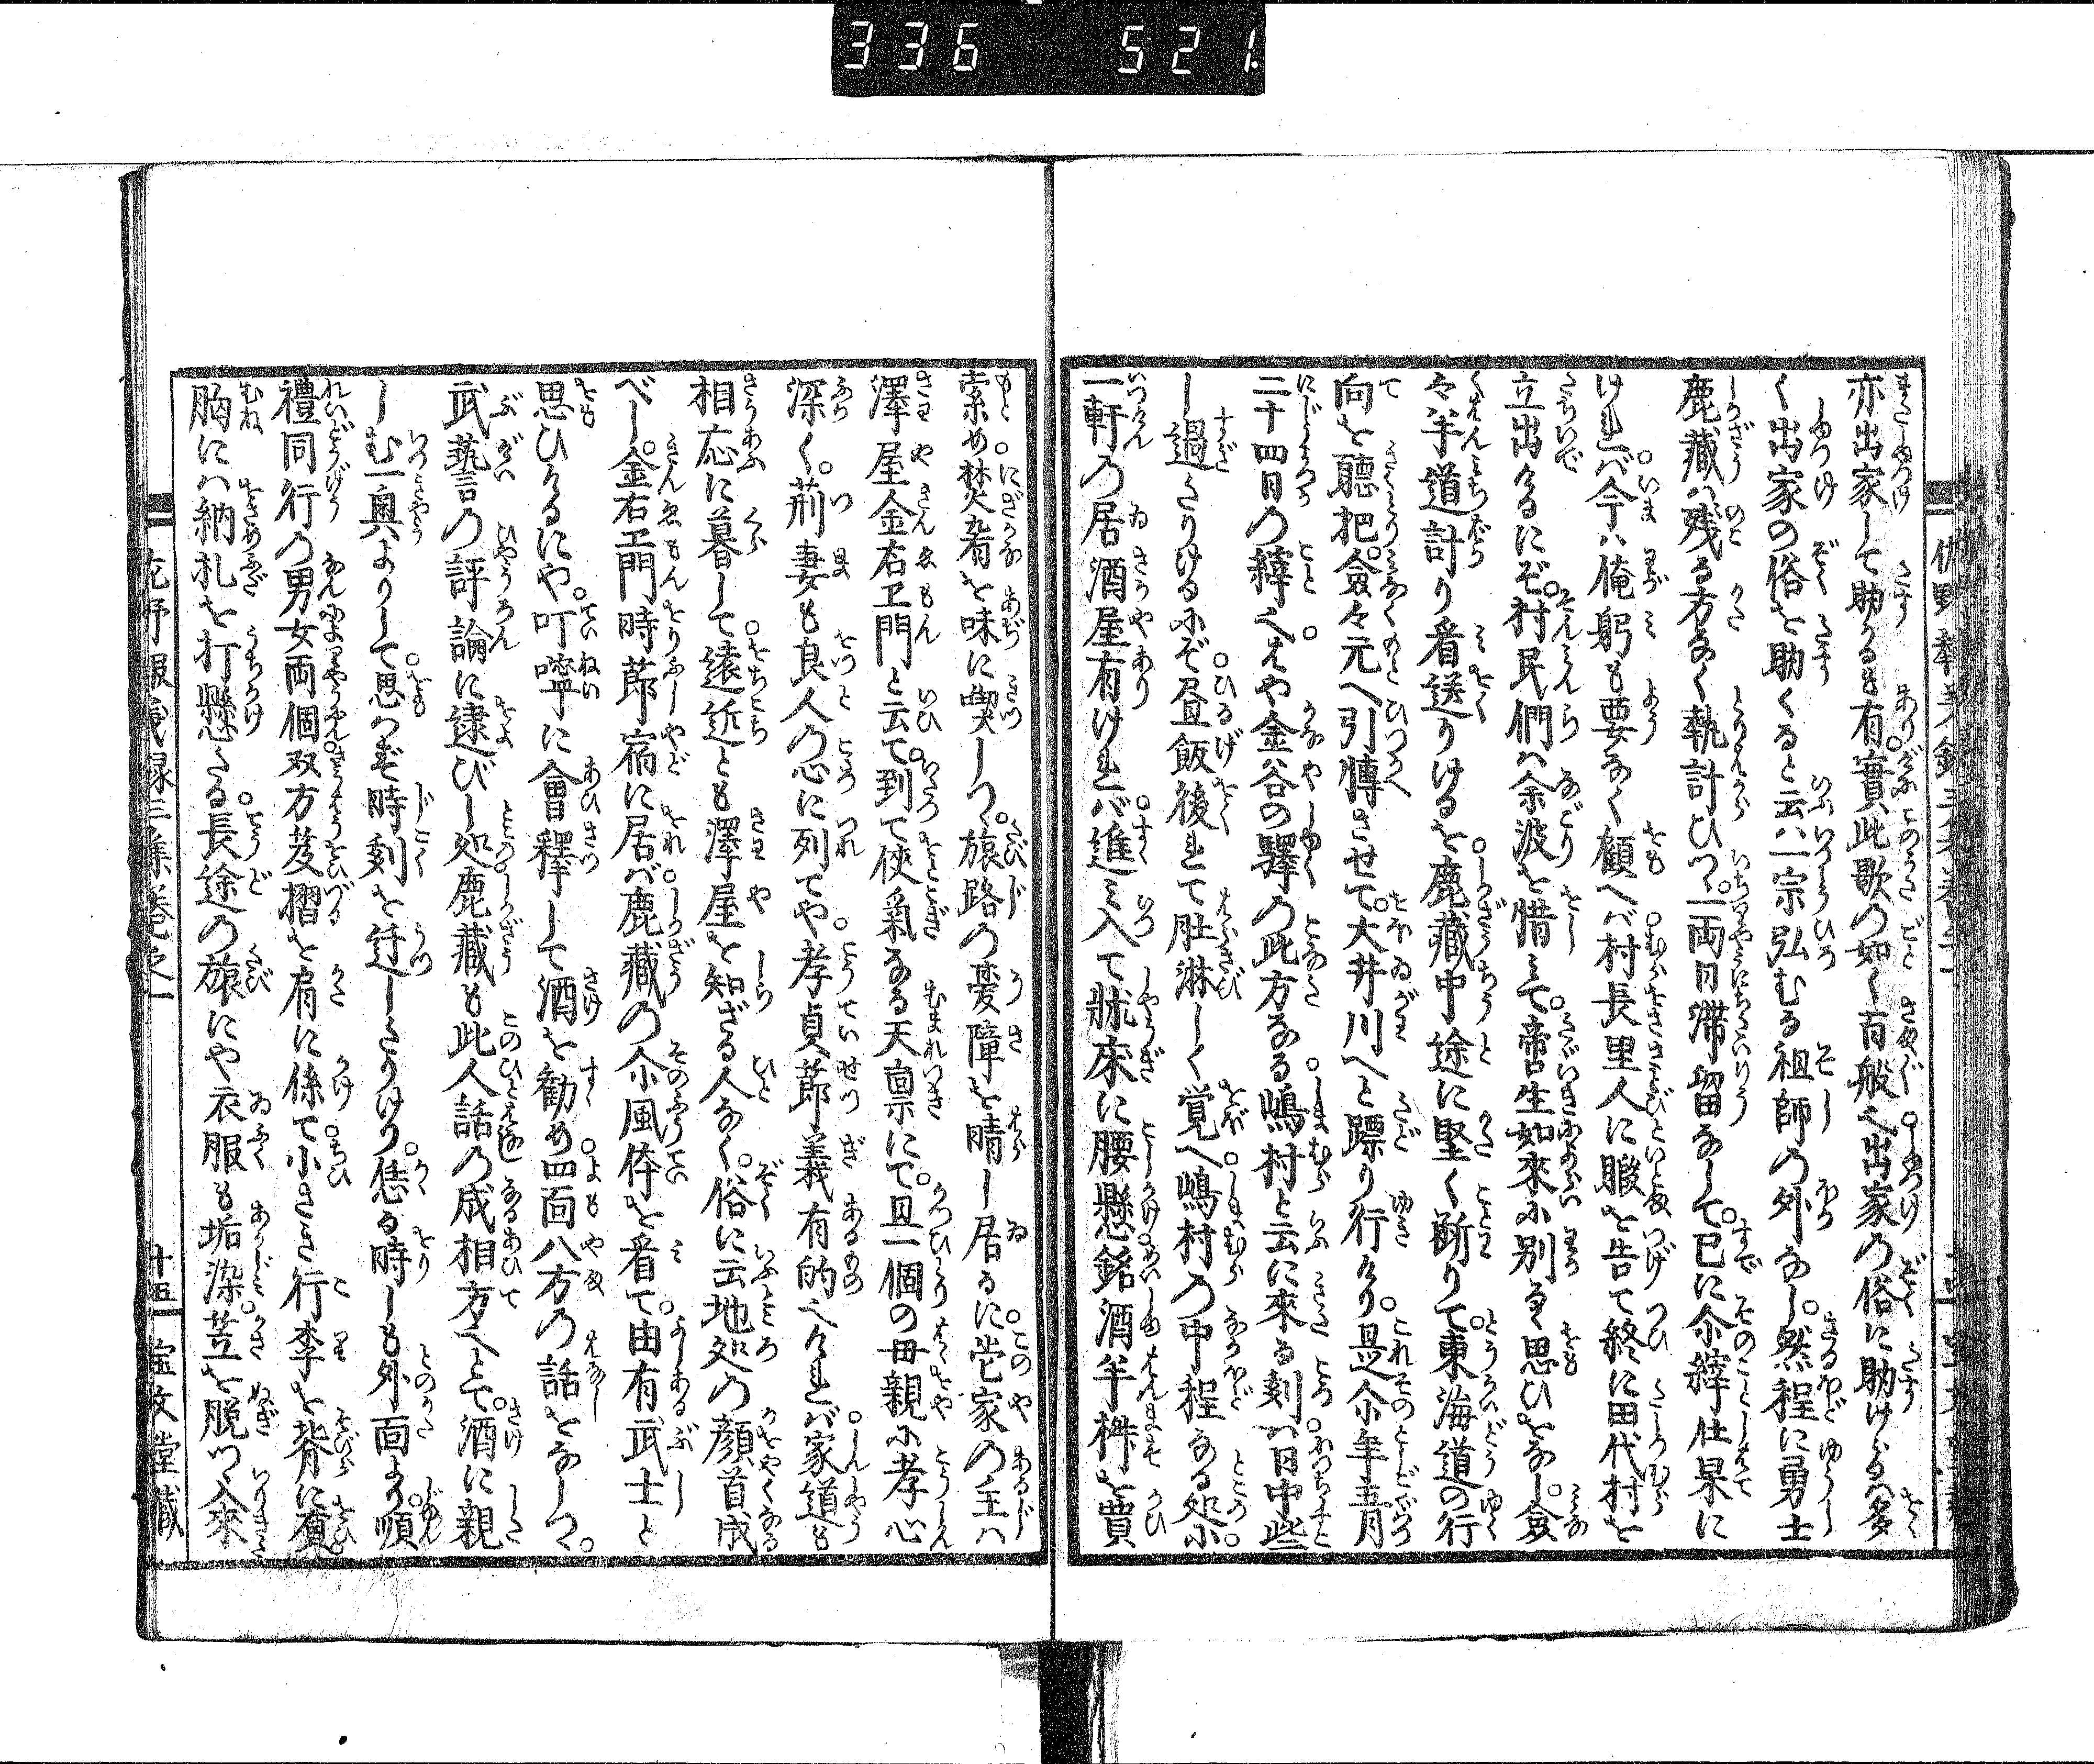 336 521
亦出家して助かるも有。實此歌の如く百般也出家の俗に助けらるゝ多
く出家の俗を助くると云ハ一宗弘むる祖師の外なし。然程に勇士
鹿藏ハ残る方なく執計ひつ。一両日滞留なして已に尒縡仕果に
けれバ今ハ俺躬も要なく顧へバ村長里人に暇を告て終に田代村を
立出けるにぞ。村民們ハ余波を惜ミて。啻生如來に別るゝ思ひをなし。僉
々半道計り看送りけるを鹿藏中途に堅く断りて。東海道の行
向を聽把。僉々元へ引轉させて。大井川へと蹽り行けり。是尒年五月
二十四日の縡也。はや金谷の驛の此方なる嶋村と云に來る刻ハ日中些
し過たりけるにぞ昼飯後れて肚淋しく覚へ嶋村の中程なる処に
一軒の居酒屋有けれバ進ミ入て牀床に腰懸銘酒半桝を買
索め焚肴を味に喫しつゝ旅路の憂障を晴し居るに。堂家の主ハ
澤屋金右エ門と云て。到て侠氣なる天禀にて。且一個の母親に孝心
深く。荊妻も良人の心に列てや孝貞節義有的也けれバ家道も
相應に暮して遠近とも澤屋を知ざる人なく。俗に云地処の顔首成
べし。金右エ門時節宿に居バ鹿藏の尒風俤を看て。由有武士と
思ひけるにや。叮嚀に會釋して酒を勧め四面八方の話をなしつゝ。
武藝の評論に逮びし処鹿藏も此人話の成相方へとて。酒に親
しむ一輿よりして思つゞ時刻を迂したりけり。恁る時しも外面より順
禮同行の男女両個双方芨摺を肩に係て小さき行李を背に負
胸にハ納札を打懸たる長途の旅にや衣服も垢染。笠を脱つ入來
十五
宝文堂藏